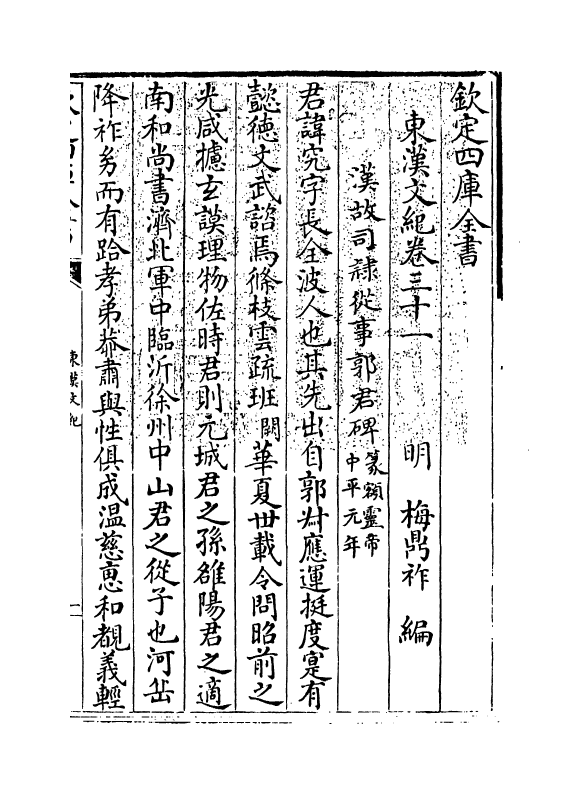 欽定四庫全書
東漢文紀卷三十一　明　梅鼎祚　編
漢故司隷從事郭君碑篆額靈帝中平元年
君諱究字長全波人也其先出自郭𠦑應運挺度寔有
懿徳文武諮焉條枝雲疏班闕華夏丗載令問昭前之
光咸攄玄謨理物佐時君則元城君之孫雒陽君之適
南和尚書濟北軍中臨沂徐州中山君之從子也河岳
降祚㐹而有跲孝弟恭肅與性俱成温慈惠和覩義輕
東漢文紀
一